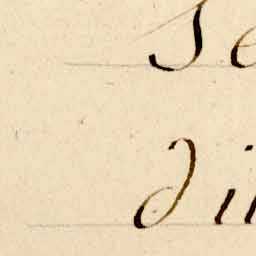 Se
di